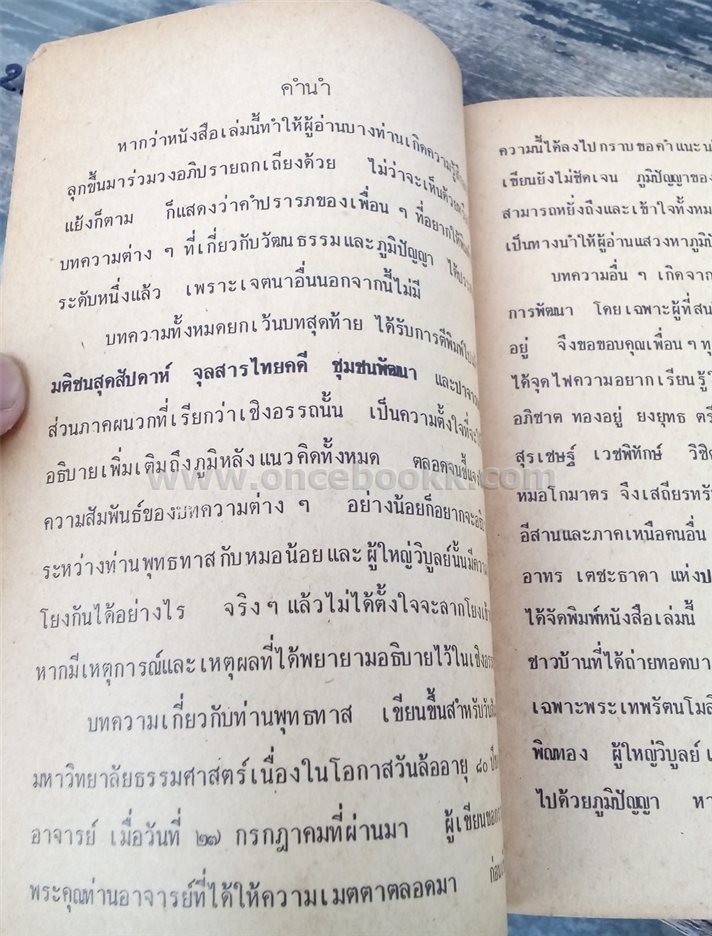 คำนำ
หากว่าหนังสือเล่มนี้ทำให้ผู้อ่านบางท่านเกิดความรู้สึก
ลุกขึ้นมาร่วมวงอภิปรายถกเถียงด้วย ไม่ว่าจะเห็นด้วย
แย้งก็ตาม ก็แสดงว่าคำปรารภของเพื่อน ๆ ที่อยากให้
บทความต่าง ๆ ที่เกี่ยวกับวัฒนธรรมและภูมิปัญญา
ระดับหนึ่งแล้ว เพราะเจตนาอื่นนอกจากนี้ไม่มี
บทความทั้งหมดยกเว้นบทสุดท้าย ได้รับการตีพิมพ์
มติชนสุดสัปดาห์ จุลสารไทยคดี ชุมชนพัฒนา
ส่วนภาคผนวกที่เรียกว่าเชิงอรรถนั้น เป็นความตั้งใจที่จะ
อธิบายเพิ่มเติมถึงภูมิหลังแนวคิดทั้งหมด ตลอดจนชี้แจง
ความสัมพันธ์ของบทความต่าง ๆ อย่างน้อยก็อยากจะ
ระหว่างท่านพุทธทาสกับหมอน้อยและผู้ใหญ่วิบูลย์นั้นมีความ
โยงกันได้อย่างไร จริงๆ แล้วไม่ได้ตั้งใจจะลากโยง
หากมีเหตุการณ์และเหตุผลที่ได้พยายามอธิบายไว้ในเชิง
บทความเกี่ยวกับท่านพุทธทาส เขียนขึ้นสำหรับ
มหาวิทยาลัยธรรมศาสตร์เนื่องในโอกาสวันล้ออายุ ๘๐ ปี
อาจารย์ เมื่อวันที่ ๒๗ กรกฎาคมที่ผ่านมา ผู้เขียน
พระคุณท่านอาจารย์ที่ได้ให้ความเมตตาตลอดมา
ความนี้ได้ลงไปกราบขอคำแนะนำ
เขียนยังไม่ชัดเจน ภูมิปัญญาของ
สามารถหยั่งถึงและเข้าใจทั้งหมด
เป็นทางนำให้ผู้อ่านแสวงหาภูมิ
บทความอื่น ๆ เกิดจาก
การพัฒนา โดยเฉพาะผู้ที่
อยู่ จึงขอขอบคุณเพื่อนๆ
ได้จุดไฟความอยากเรียนรู้
อภิชาต ทองอยู่ ยงยุทธ ตรี
สุรเชษฐ์ เวชพิทักษ์
หมอโกมาตร จึงเสถียรทรัพย์
อีสานและภาคเหนือคนอื่น
อาทร เตชะธาดา แห่ง
ได้จัดพิมพ์หนังสือเล่มนี้
ชาวบ้านที่ได้ถ่ายทอด
เฉพาะพระเทพรัตนโมลี
พิณทอง ผู้ใหญ่วิบูลย์
ไปด้วยภูมิปัญญา
www.oncebookk.com